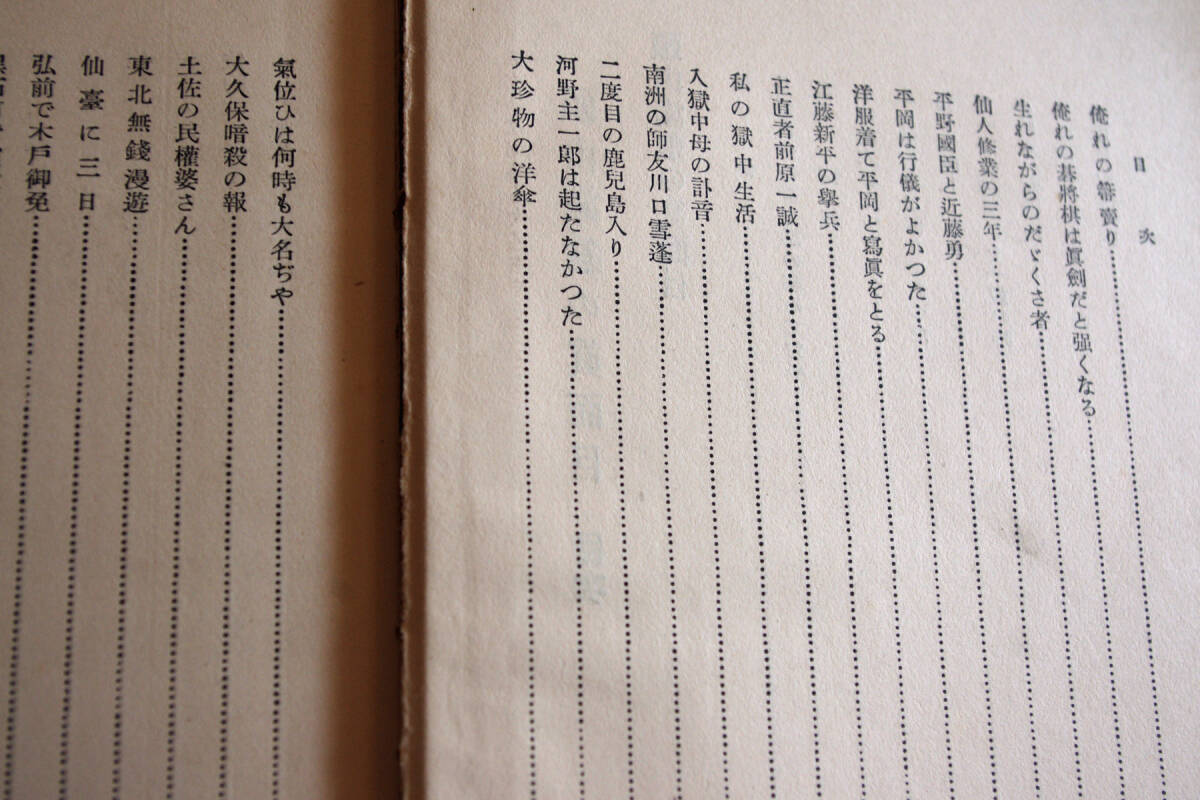 目次
俺れの箒賣り
俺れの碁將棋は眞劍だと强くなる
生れながらのだゞくさ者
仙人修業の三年
平野國臣と近藤勇
平岡は行儀がよかつた
洋服着て平岡と寫眞をとる
江藤新平の擧兵
正直者前原一誠
私の獄中生活
入獄中母の訃音
南洲の師友川口雪蓬
二度目の鹿兒島入り
河野主一郞は起たなかつた
大珍物の洋傘
氣位ひは何時も大名ぢや
大久保暗殺の報
土佐の民權婆さん
東北無錢漫遊
仙臺に三日
弘前で木戶御免